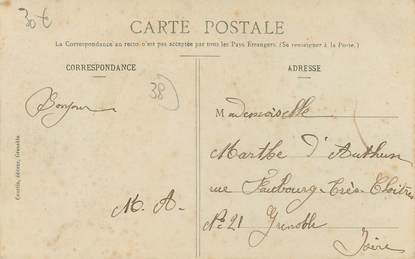 30 €
CARTE POSTALE
La Correspondance au recto n'est pas acceptée par tous les Pays Etrangers. (Se renseigner à la Poste.)
CORRESPONDANCE
ADRESSE
38
Bonjour
M. A.
Mademoiselle
Marthe d'Authun
rue Faubourg Très-Cloîtres
No 21 Grenoble
Isère
éditeur, Grenoble